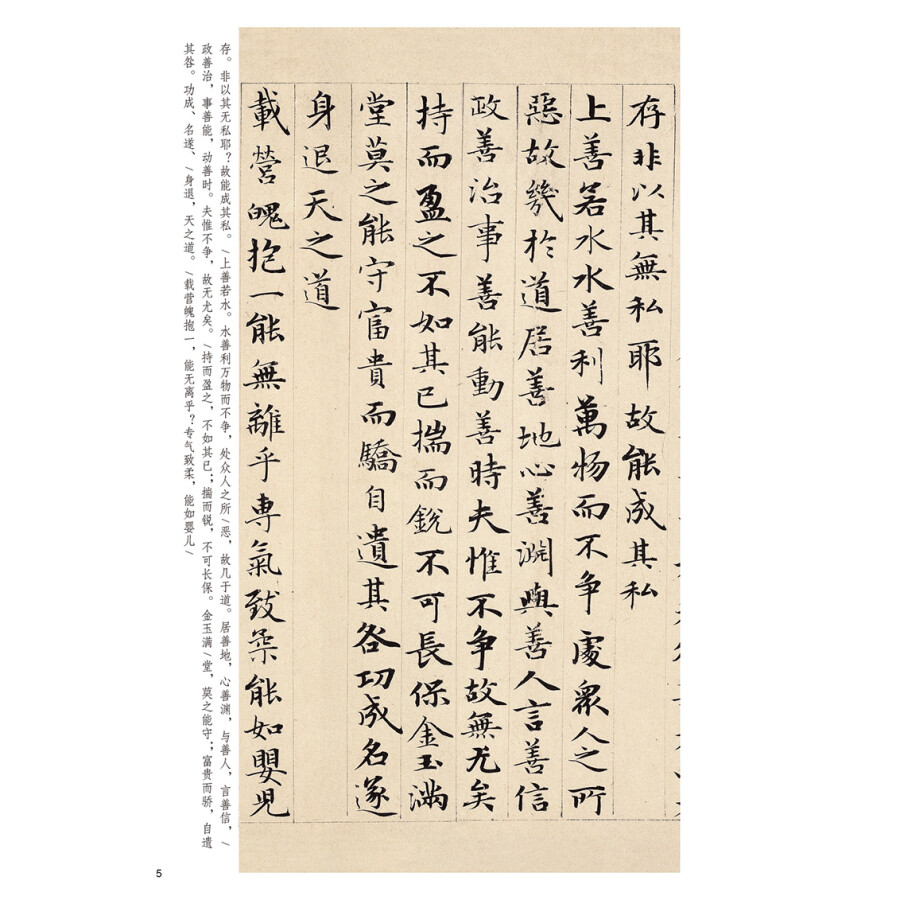 存非以其無私耶故能成其私
上善若水水善利萬物而不争處眾人之所
惡故幾於道居善地心善淵與善人言善信
政善治事善能動善時夫惟不争故無尤矣
持而盈之不如其已揣而銳不可長保金玉滿
堂莫之能守富貴而驕自遺其咎功成名遂
身退天之道
載營魄抱一能無離乎専氣致柔能如嬰児
存。非以其无私耶？故能成其私。/上善若水。水善利万物而不争，处众人之所/恶，故几于道。居善地，心善渊，与善人，言善信，/
政善治，事善能，动善时。夫惟不争，故无尤矣。/持而盈之，不如其已；揣而锐，不可长保。金玉满/堂，莫之能守；富贵而骄，自遗
其咎。功成、名遂、/身退，天之道。/载营魄抱一，能无离乎？专气致柔，能如婴儿/
5